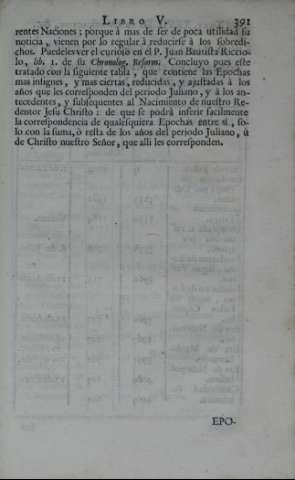 LIBRO V. 391
rentes Naciones; porque à mas de ser de poca utilidad su
noticia, vienen por lo regular à reducirse à los sobredi-
chos. Puedelesver el curioso en el P. Juan Bautista Riccio-
lo, lib. 1. de su Chronolog. Reform. Concluyo pues este
tratado con la siguiente tabla, que contiene las Epochas
mas insignes, y mas ciertas, reducidas, y ajustadas à los
años que les corresponden del periodo Juliano, y à los an-
tecedentes, y subsequentes al Nacimiento de nuestro Re-
dentor Jesu Christo: de que se podrá inferir facilmente
la correspondencia de qualesquiera Epochas entre si, so-
lo con la suma, ò resta de los años del periodo Juliano, ù
de Christo nuestro Señor, que alli les corresponden.
EPO-